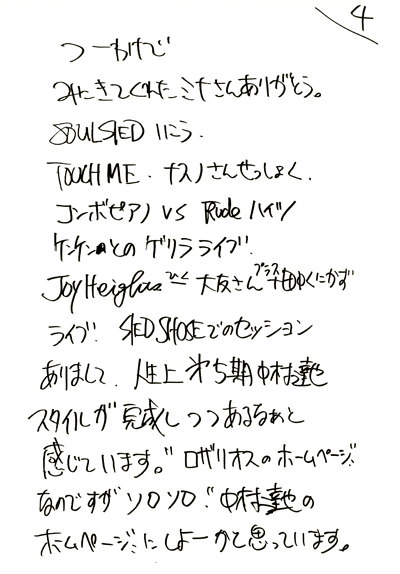 4
つーわけで
みにきてくれたミナさんありがとう。
SOULSTED いこう.
TOUCH ME. ナスノさんせっしょく.
コンボピアノ VS Rudeハイツ
ケンケンとの ゲリラライブ.
Joy Heights ひく 大友さん プラス 植村くにかず
ライブ! STEDSHOSEでのセッション
ありまして、人生上 第5期中村達也
スタイルが 完成しつつあるなぁと
感じています。" ロザリオスのホームページ
なのですが ソロソロ" 中村達也の
ホームページにしよーかと思っています。